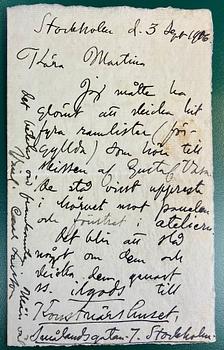 Stockholm d. 3 Sept 1906
Kära Martina
Jag måtte ha
glömt att skicka hit
fyra ramlister (för-
gyllda) som höra till
skissen af Gustaf Vasa.
de stå visst uppresta
i hörnet mot panelen
och fönstret i atelieren
Det blir att slå
något om dem och
skicka dem genast
ss. ilgods till
Konstnärshuset,
Smålandsgatan 7. Stockholm.
Carl Larsson